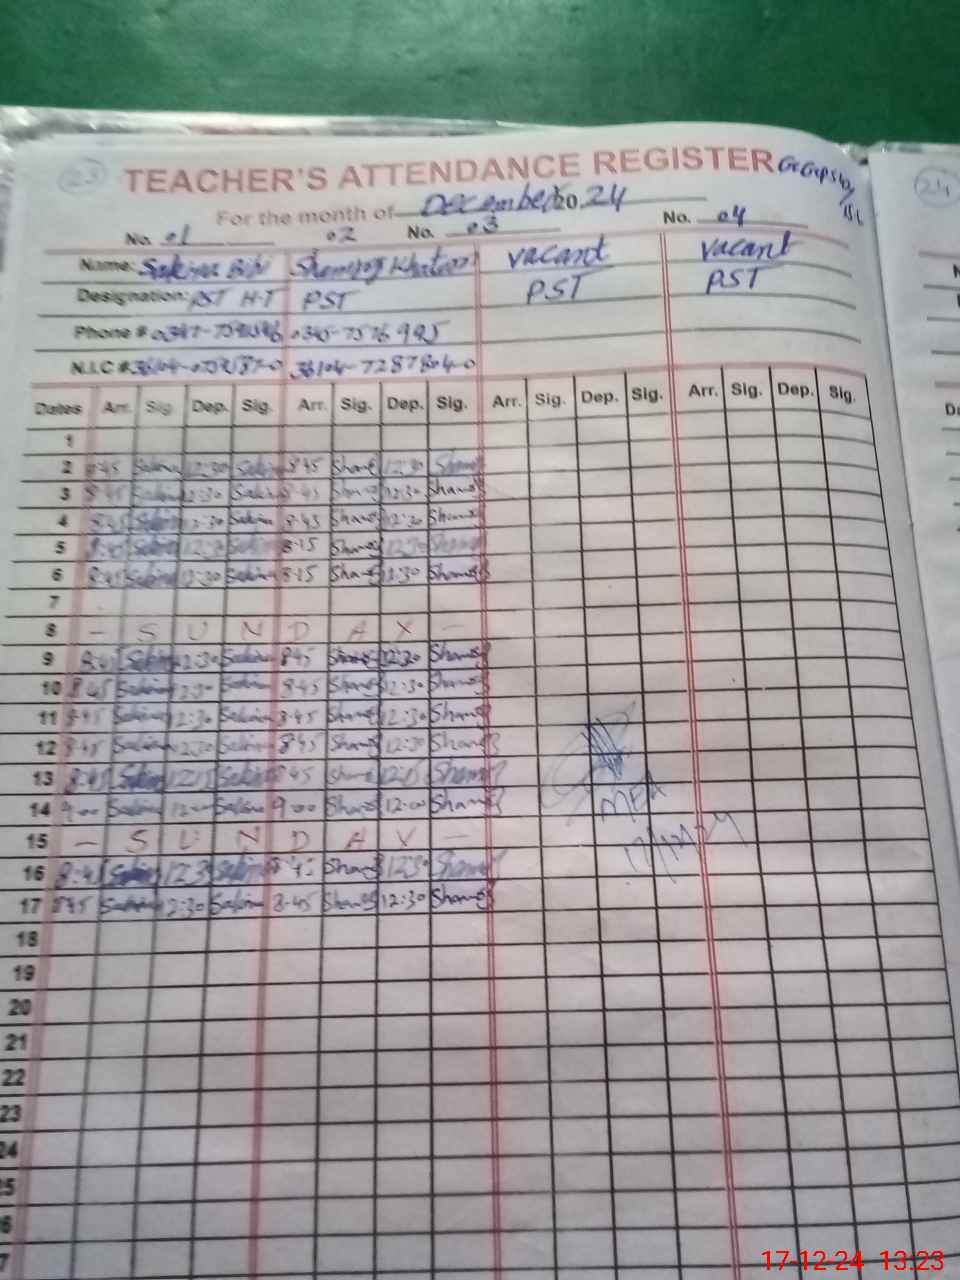 23
TEACHER'S ATTENDANCE REGISTER
For the month of December 2024
24
No. 01 02 No. 03 No. 04
Name: Sakina Bibi Khatoon vacant vacant
Designation: PST H-T PST PST PST
Phone # 0345-7576995
N.I.C # 36104-7287804-0
Dates Arr. Sig. Dep. Sig. Arr. Sig. Dep. Sig. Arr. Sig. Dep. Sig. Arr. Sig. Dep. Sig.
1
2 8:45 Sakina 12:30 Sakina 8:45 Shams 12:30 Shams
3 8:45 Sakina 12:30 Sakina 8:45 Shams 12:30 Shams
4 8:45 Sakina 12:30 Sakina 8:45 Shams 12:30 Shams
5 8:45 Sakina 12:30 Sakina 8:15 Shams 12:30 Shams
6 8:45 Sakina 12:30 Sakina 8:15 Shams 12:30 Shams
7
8 - S U N D A Y -
9 8:45 Sakina 12:30 Sakina 8:45 Shams 12:30 Shams
10 8:45 Sakina 12:30 Sakina 8:45 Shams 12:30 Shams
11 8:45 Sakina 12:30 Sakina 8:45 Shams 12:30 Shams
12 8:45 Sakina 12:30 Sakina 8:45 Shams 12:30 Shams
13 8:45 Sakina 12:15 Sakina 8:45 Shams Shams
14 9:00 Sakina 12:00 Sakina 9:00 Shams 12:00 Shams
MEA
15 - S U N D A Y -
17/12/24
16 8:45 Sakina 12:30 Sakina 8:45 Shams 12:30 Shams
17 8:45 Sakina 12:30 Sakina 8:45 Shams 12:30 Shams
18
19
20
21
22
23
24
5
6
7
17-12-24 13:23